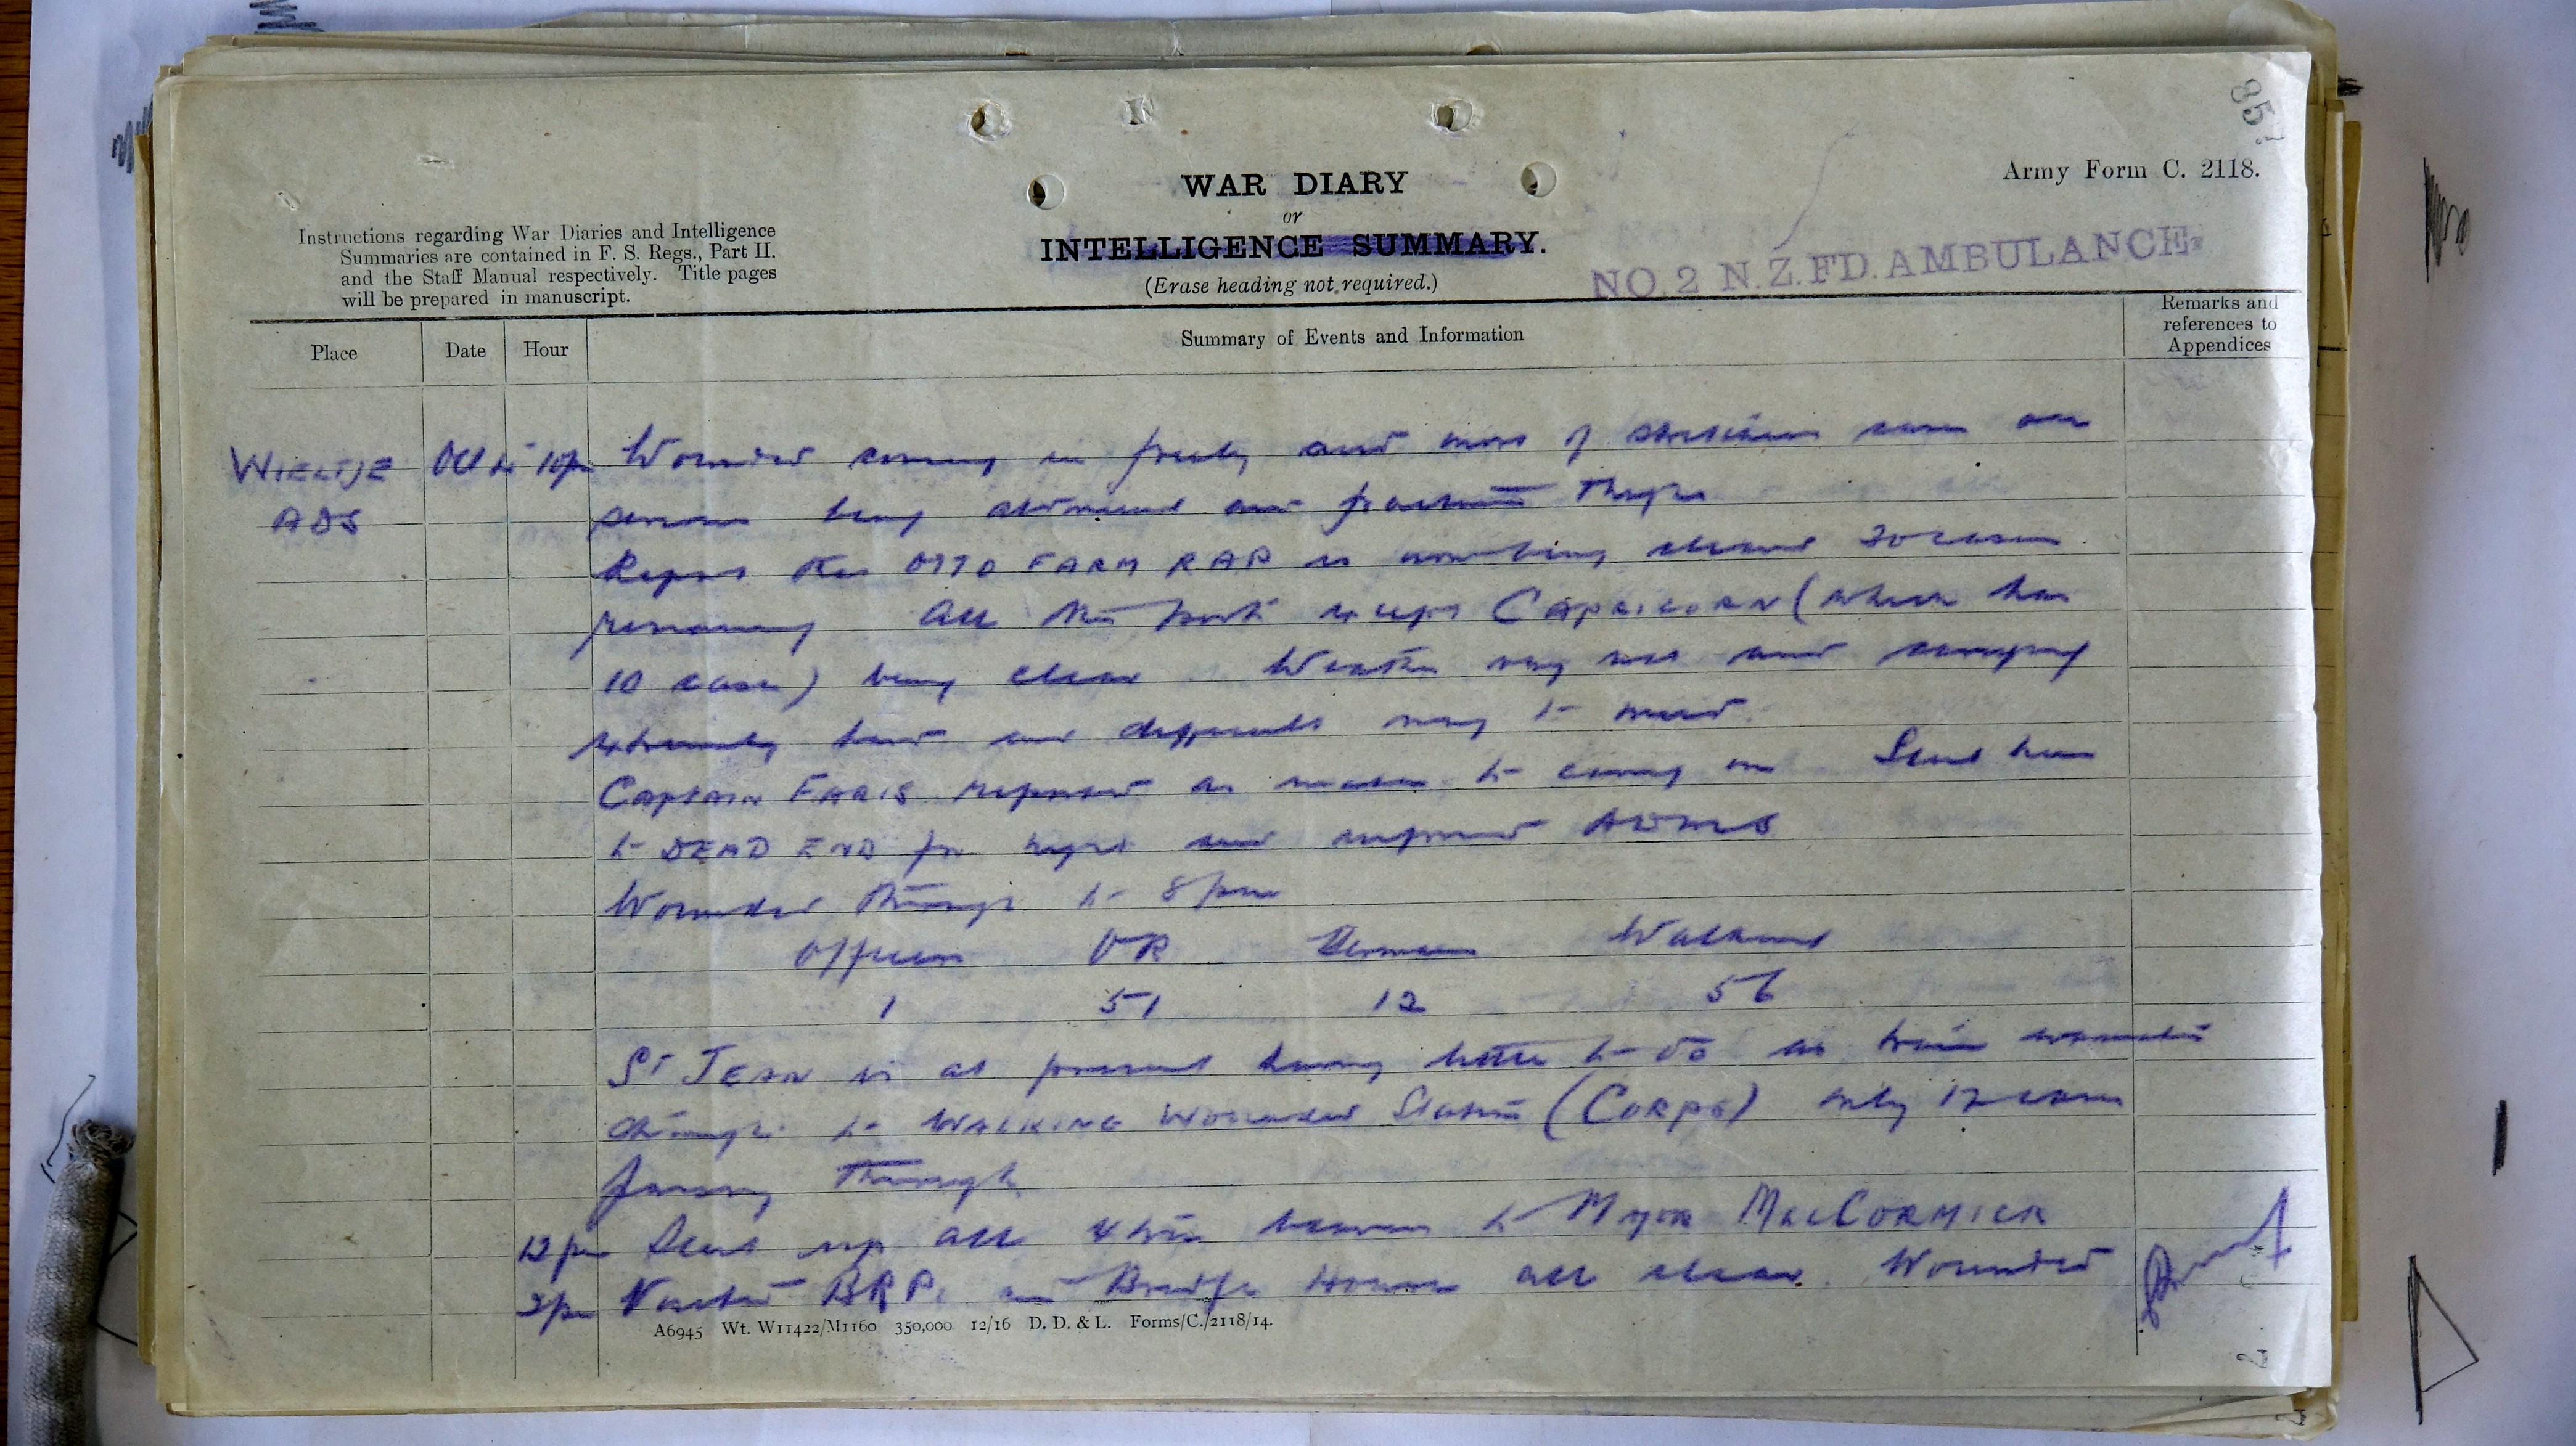 85
Army Form C. 2118.
WAR DIARY
or
INTELLIGENCE SUMMARY.
(Erase heading not required.)
Instructions regarding War Diaries and Intelligence
Summaries are contained in F. S. Regs., Part II.
and the Staff Manual respectively. Title pages
will be prepared in manuscript.
NO. 2 N.Z. FD. AMBULANCE.
Place Date Hour Summary of Events and Information Remarks and
references to
Appendices
WIELTJE Oct 4 10pm Wounded coming in freely and most of stretcher cases are
ADS serious being abdominal and fractured Thighs
Report that OTTO FARM RAP is now being cleared 20 cases
remaining All the posts except CAPRICORN (which has
10 cases) being clear. Weather very wet and carrying
extremely hard and difficult owing to mud.
Captain FARIS reported as unable to carry on Send him
to DEAD END for night and informed ADMS
Wounded through to 8 pm
Officers OR Germans Walking
1 51 12 56
St JEAN is at present having little to do as train
through to WALKING Wounded Station (CORPS) only 12 cases
passing Through
12 pm Sent up all 4 bearers to Major MACCORMICK
2pm Visited BRP. and Bridge House all clear. Wounded
A6945 Wt. W11422/M1160 350,000 12/16 D. D. & L. Forms/C./2118/14.